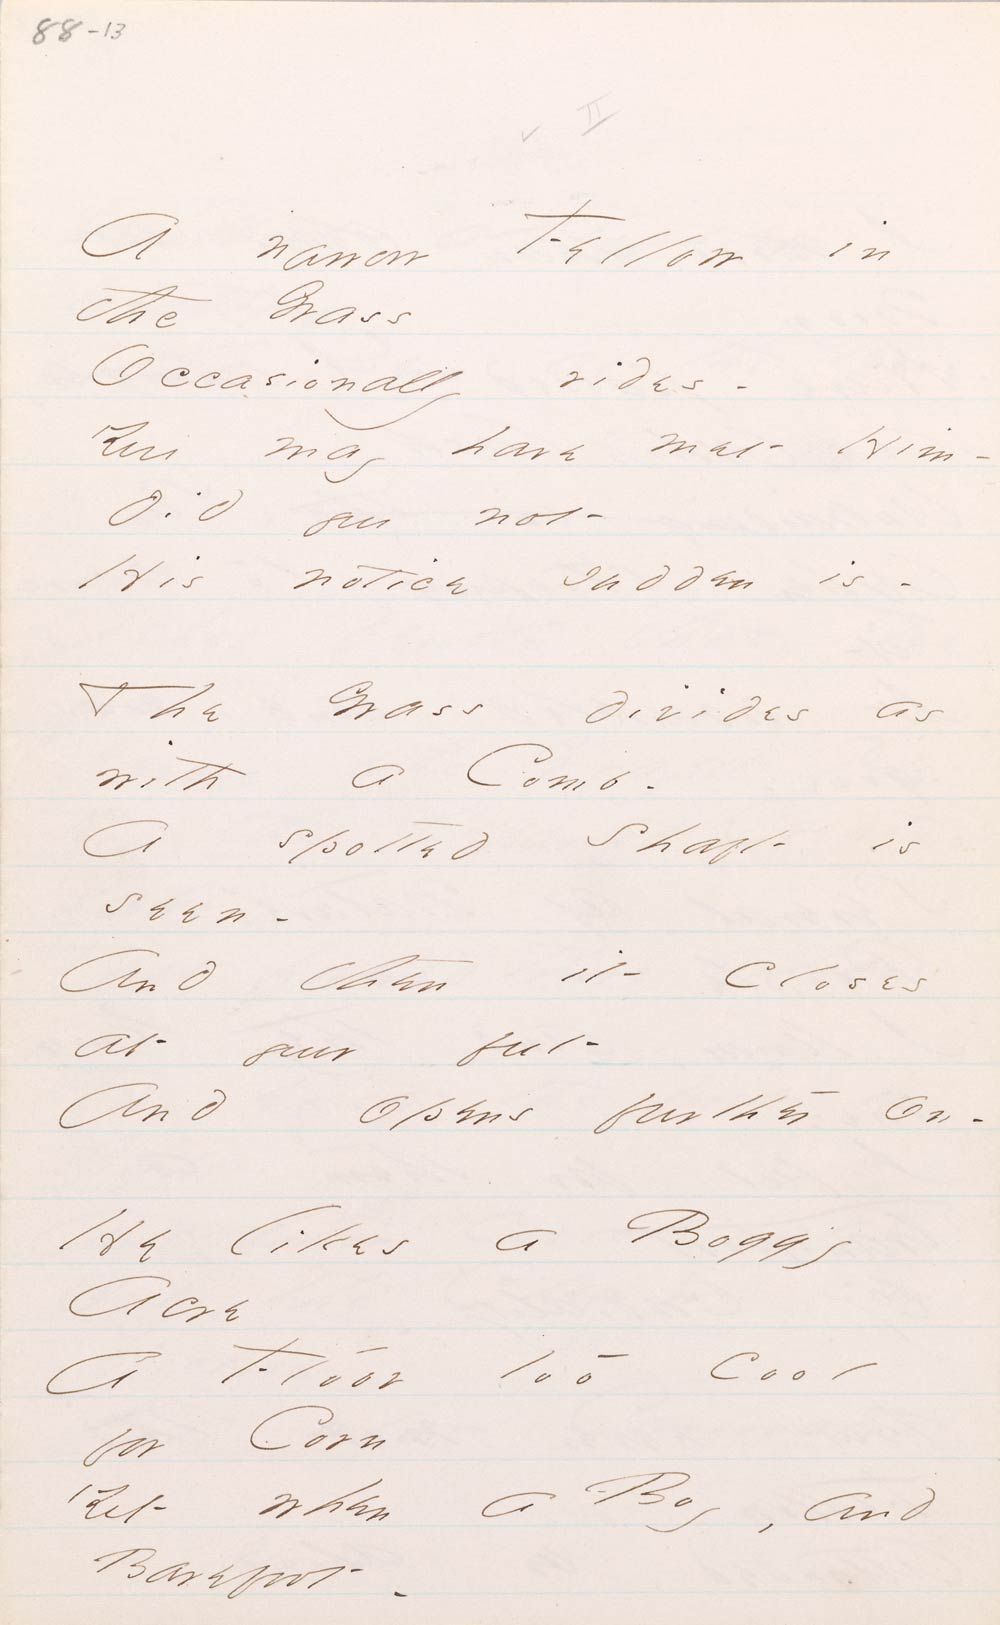 88-13
II
A narrow Fellow in
the Grass
Occasionally rides -
You may have met Him -
Did you not
His notice sudden is -
The Grass divides as
with a Comb -
A spotted Shaft is
seen -
And then it closes
at your feet
And opens further on -
He likes a Boggy
Acre
A Floor too cool
for Corn
Yet when a Boy, and
Barefoot -